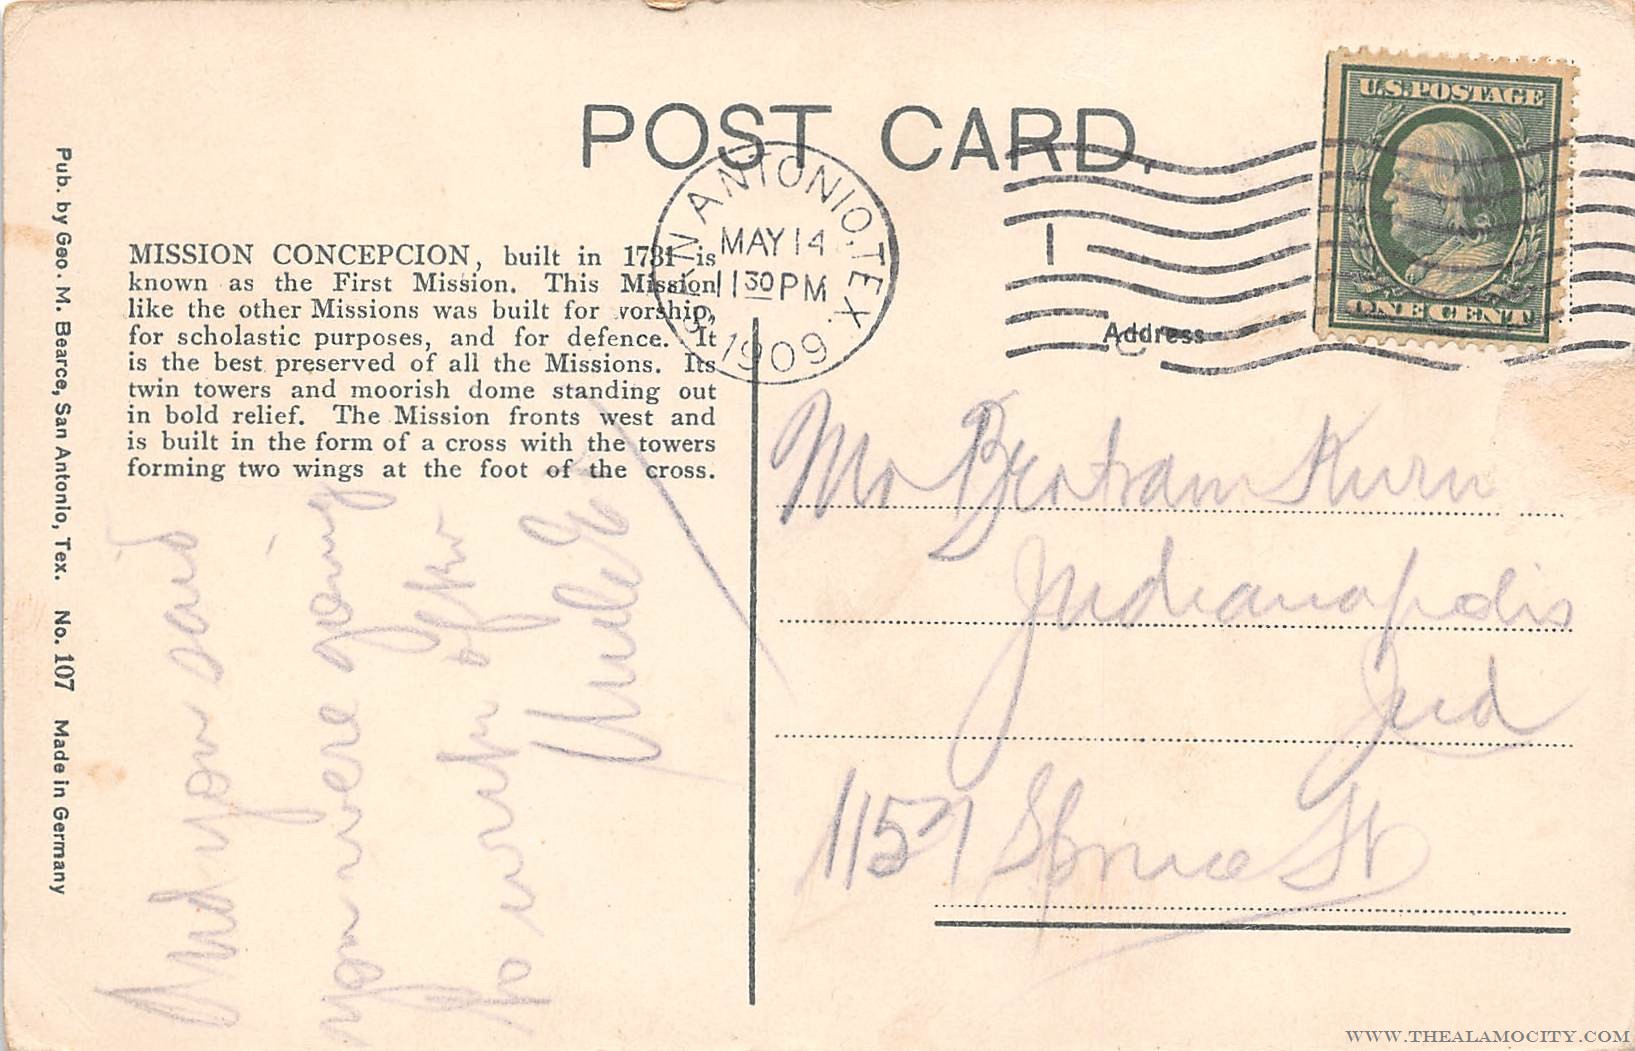 POST CARD.
U.S. POSTAGE
ONE CENT
SAN ANTONIO, TEX.
MAY 14
11 30 PM
1909
1
Address
MISSION CONCEPCION, built in 1731 is
known as the First Mission. This Mission
like the other Missions was built for vorship,
for scholastic purposes, and for defence. It
is the best preserved of all the Missions. Its
twin towers and moorish dome standing out
in bold relief. The Mission fronts west and
is built in the form of a cross with the towers
forming two wings at the foot of the cross.
Pub. by Geo. M. Bearce, San Antonio, Tex. No. 107 Made in Germany
And you said
you were going
to write often
Mr Bertram
Indianapolis
Ind
1157 Spruce St
WWW.THEALAMOCITY.COM